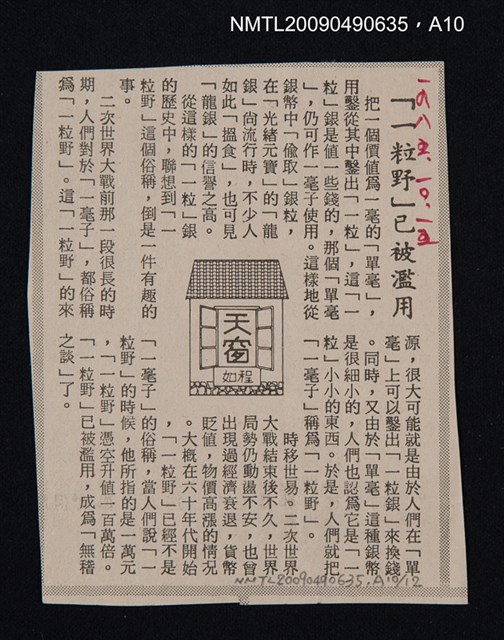 NMTL20090490635,A10
一九八五、一〇、一五
「一粒野」已被濫用
把一個價值爲一毫的「單毫」,
用鑿從其中鑿出「一粒」,這「一
粒」銀是值一些錢的,那個「單毫
」,仍可作一毫子使用。這樣地從
銀幣中「偷取」銀粒,
在「光緒元寶」的「龍
銀」尚流行時,不少人
如此「搵食」,也可見
「龍銀」的信譽之高。
從這樣的「一粒」銀
的歷史中,聯想到「一
粒野」這個俗稱,倒是一件有趣的
事。
二次世界大戰前那一段很長的時
期,人們對於「一毫子」,都俗稱
爲「一粒野」。這「一粒野」的來
源,很大可能就是由於人們在「單
毫」上可以鑿出「一粒銀」來換錢
。同時,又由於「單毫」這種銀幣
是很細小的,人們也認爲它是「一
粒」小小的東西。於是,人們就把
「一毫子」稱爲「一粒野」。
時移世易。二次世界
大戰結束後不久,世界
局勢仍動盪不安,也曾
出現過經濟衰退,貨幣
貶值,物價高漲的情況
。大概在六十年代開始
,「一粒野」已經不是
「一毫子」的俗稱,當人們說「一
粒野」的時候,他所指的是一萬元
,「一粒野」憑空升值一百萬倍。
「一粒野」已被濫用,成爲「無稽
之談」了。
天窗
程如
NMTL20090490635.A10/12